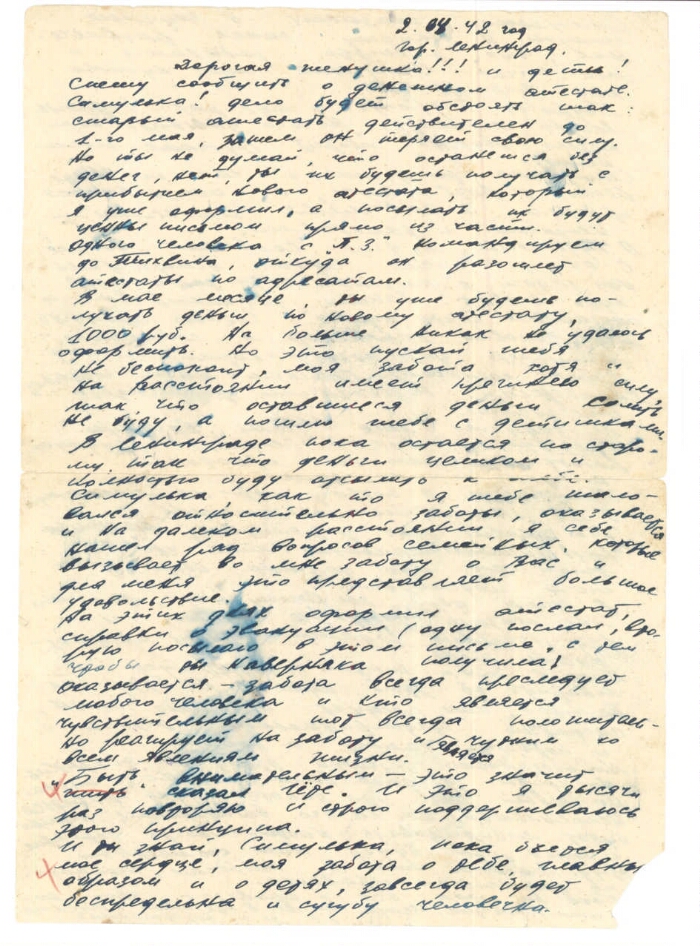 2.04.42 год
гор. Ленинград.
Дорогая женушка!!! и дети!
Спешу сообщить о денежном атестате.
Симулька! дело будет обстоять так:
старый атестать действителен до
1-го мая, затем он теряет свою силу.
Но ты не думай, что останешся без
денег, нет, ты их будешь получать с
прибытием нового атестата, который
я уже оформил, а посылать их будут
ценным писмом прямо из части.
одного человека с Л.З." командируем
до Тихвина, откуда он разошлет
атестаты по адресатам.
В мае месяце, ты уже будешь по-
лучать деньги по новому атестату,
1000 руб. На больше никак не удалось
оформить. Но это пускай тебя
не беспокоит, моя забота хотя и
на расстоянии имеет прежнею силу,
так что оставшиеся деньги
не буду, а пошлю тебе с детишками.
В Ленинграде пока остается по старо-
му, так что деньги целиком и
полностью буду отсылать к тебе.
Симулька, как то я тебе жало-
вался относительно заботы, оказывается
и на далеком расстоянии я себе
нашел ряд вопросов семейных, которые
вызывает во мне заботу о Вас и
для меня это представляет большое
удовольствие.
На этих днях оформил атестат,
справки о эвакуации (одну послал, вто-
рую посылаю в этом письме, с тем
чтобы ты наверняка получила)
оказывается – забота всегда преследует
любого человека и кто является
чувствительным тот всегда положитель-
но реагирует на заботу и является чутким ко
всем явлениям жизни.
"Быть внимательным – это значит
жить" сказал Гёте. И это я тысячи
раз повторяю и строго поддерживаюсь
этого принципа.
И ты знай, Симулька, пока бьется
мое сердце, моя забота о тебе, главным
образом и о детях, завсегда будет
беспредельна и сугубу человечна.